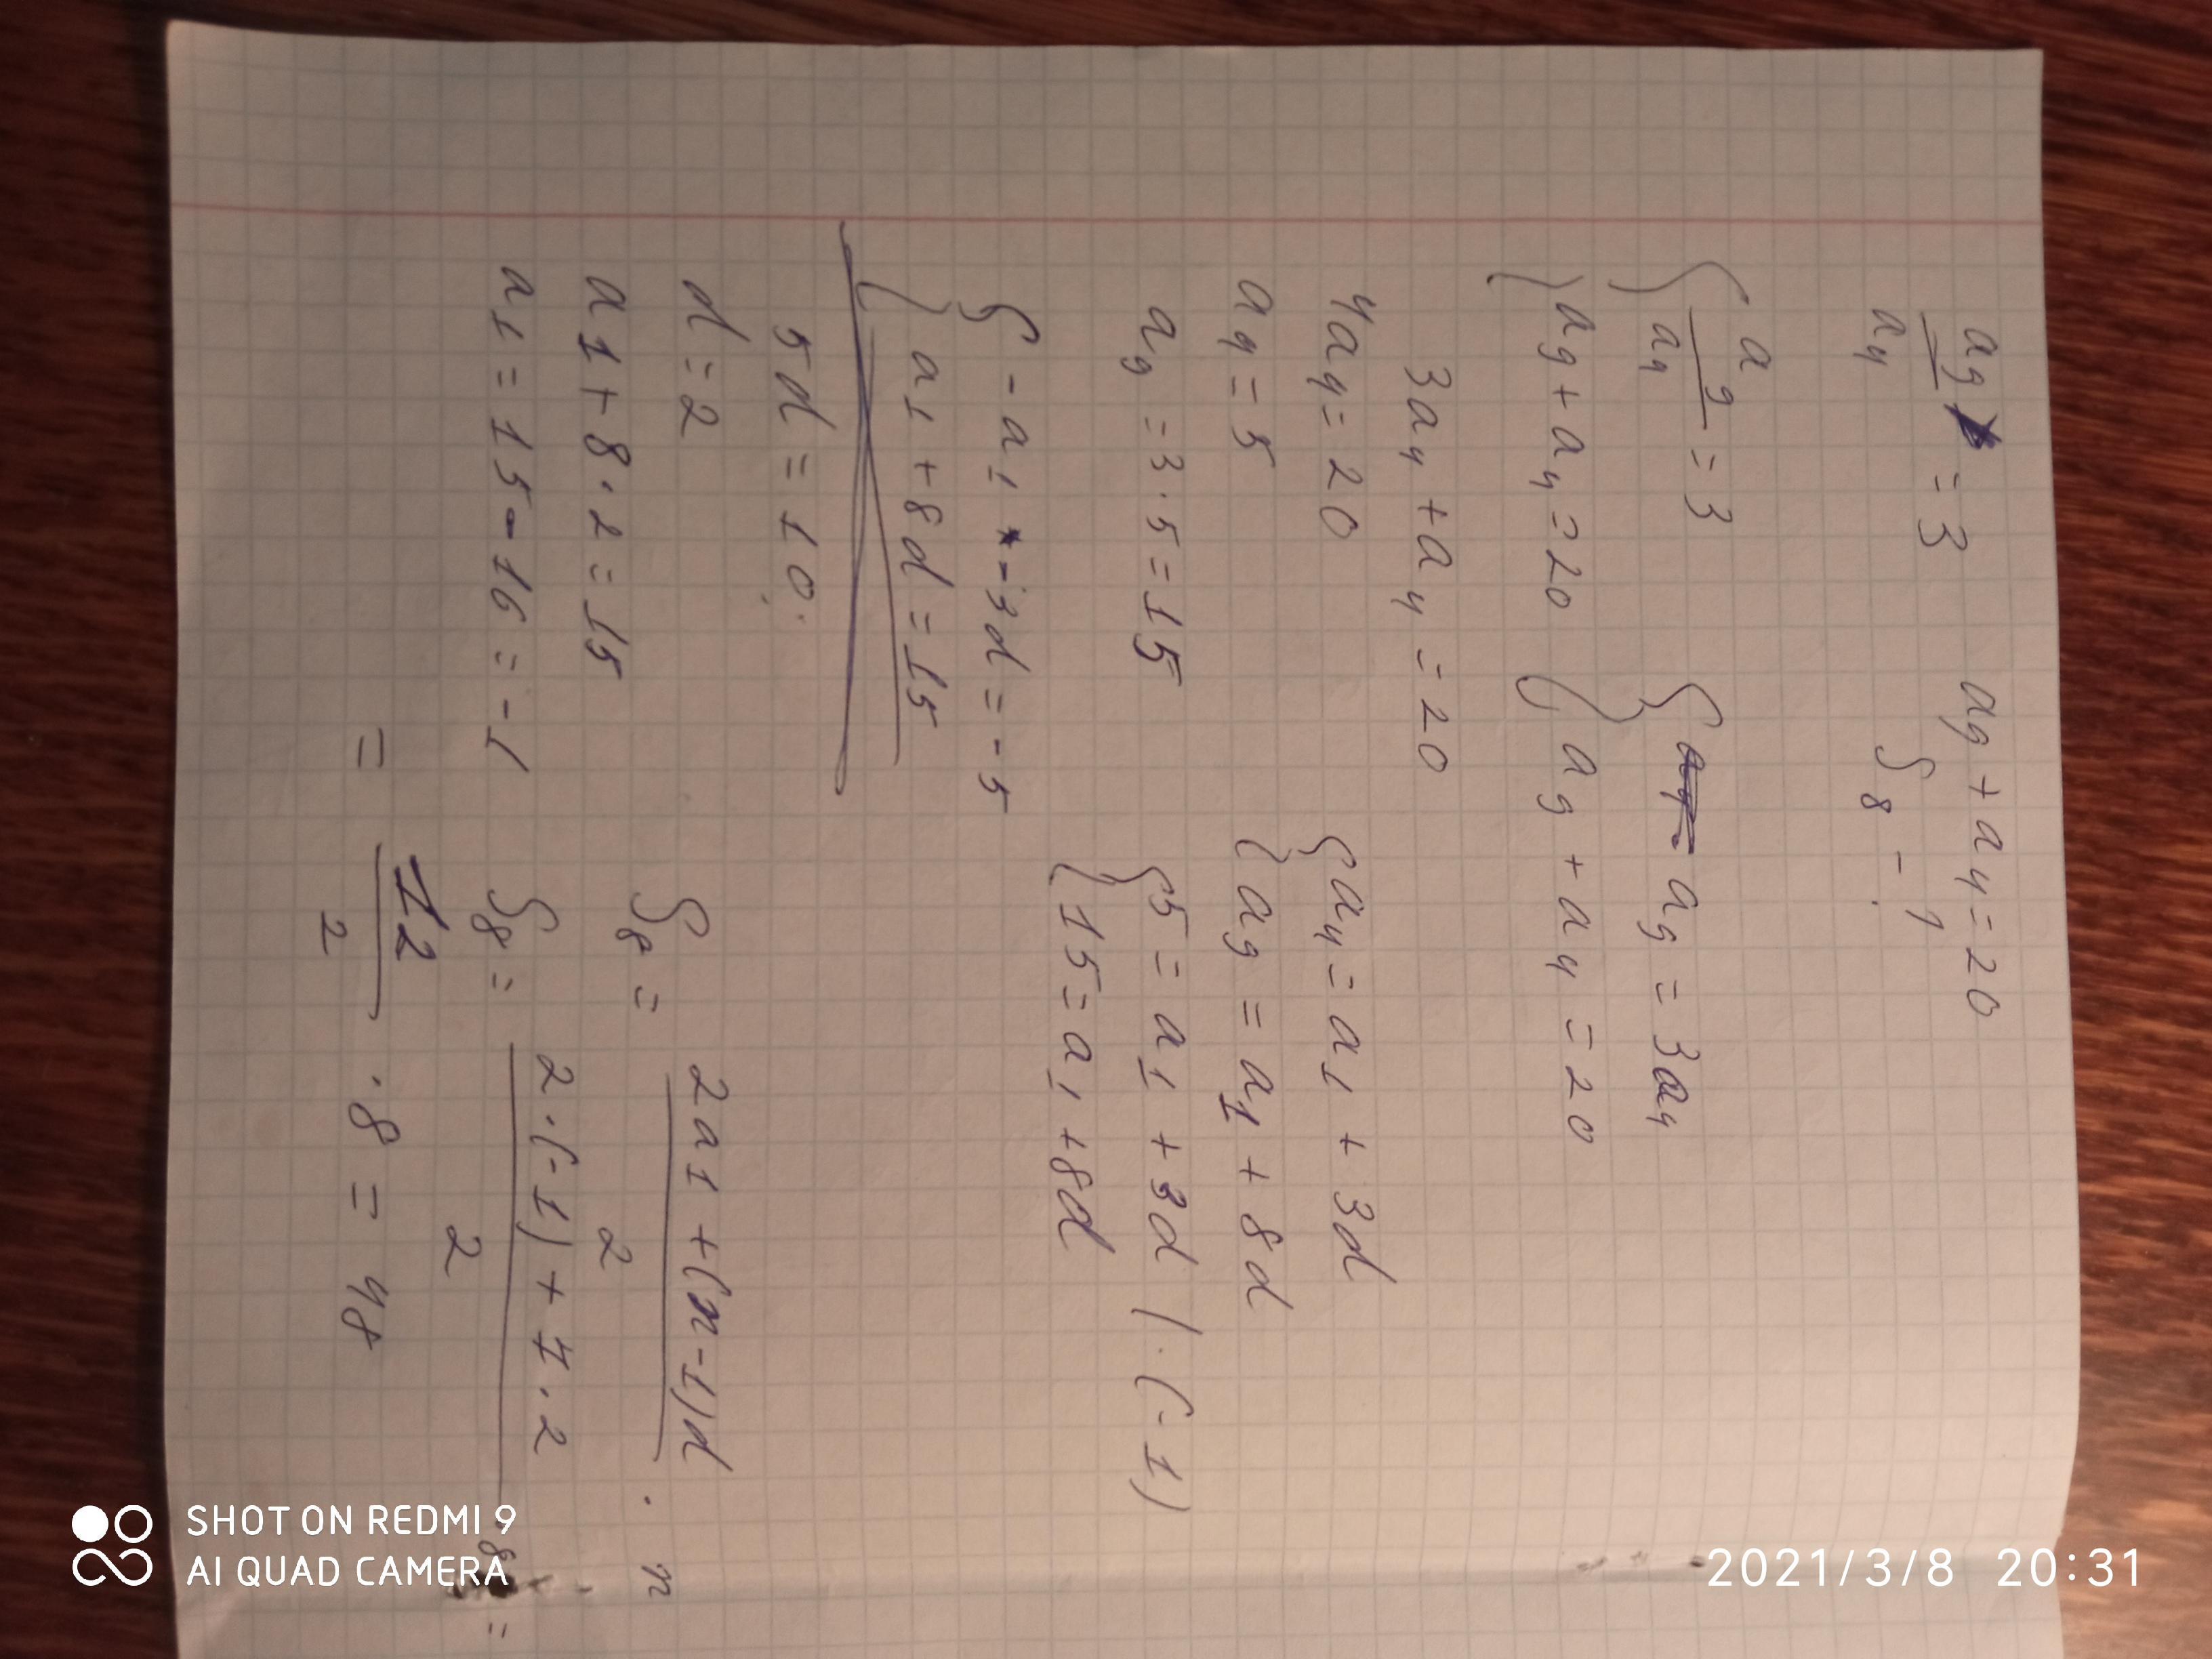 a₉/a₄ = 3    a₉ + a₄ = 20
S₈ - ?
{ a₉/a₄ = 3    { a₉ = 3a₄
{ a₉ + a₄ = 20    { a₉ + a₄ = 20
3a₄ + a₄ = 20
4a₄ = 20    { a₄ = a₁ + 3d
a₄ = 5    { a₉ = a₁ + 8d
a₉ = 3·5 = 15    { 5 = a₁ + 3d | · (-1)
{ 15 = a₁ + 8d
{ -a₁ - 3d = -5
{ a₁ + 8d = 15
5d = 10
d = 2    S₈ = (2a₁ + (n-1)d)/2 · n
a₁ + 8·2 = 15
a₁ = 15 - 16 = -1    S₈ = (2·(-1) + 7·2)/2 · 8 =
= 12/2 · 8 = 48
SHOT ON REDMI 9
AI QUAD CAMERA
2021/3/8 20:31